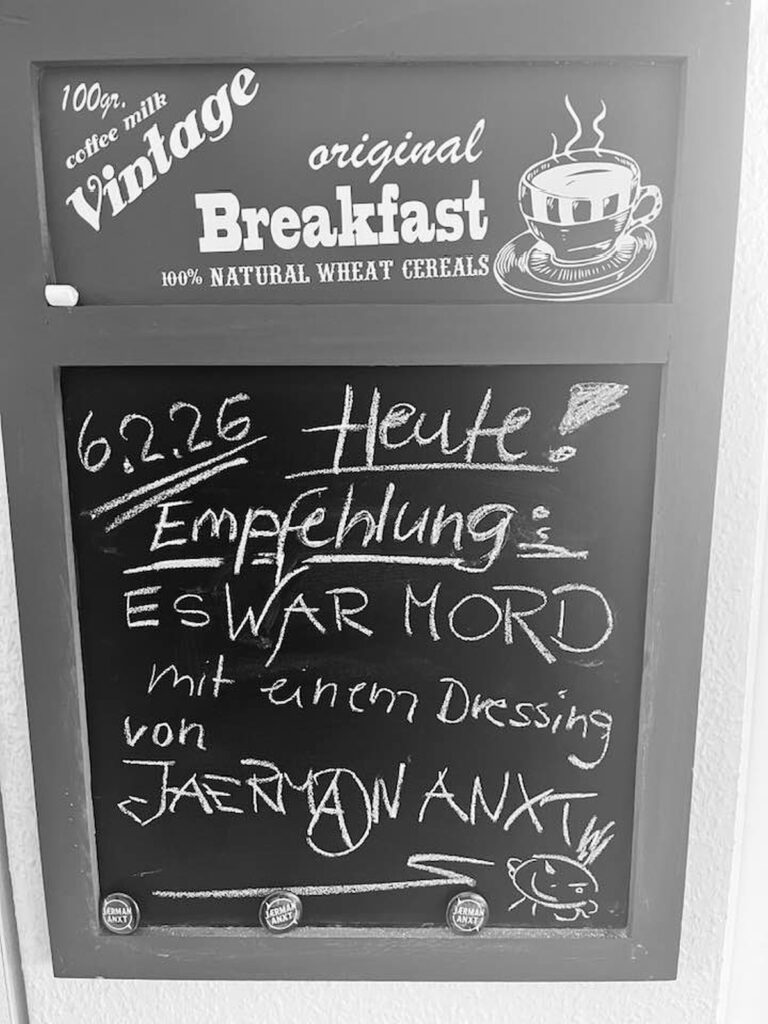 100gr.
coffee milk
Vintage
original
Breakfast
100% NATURAL WHEAT CEREALS
6.2.26 Heute!
Empfehlung:
ES WAR MORD
mit einem Dressing
von
JAERMAN ANXT
JÆRMAN
ANXT
JÆRMAN
ANXT
JÆRMAN
ANXT